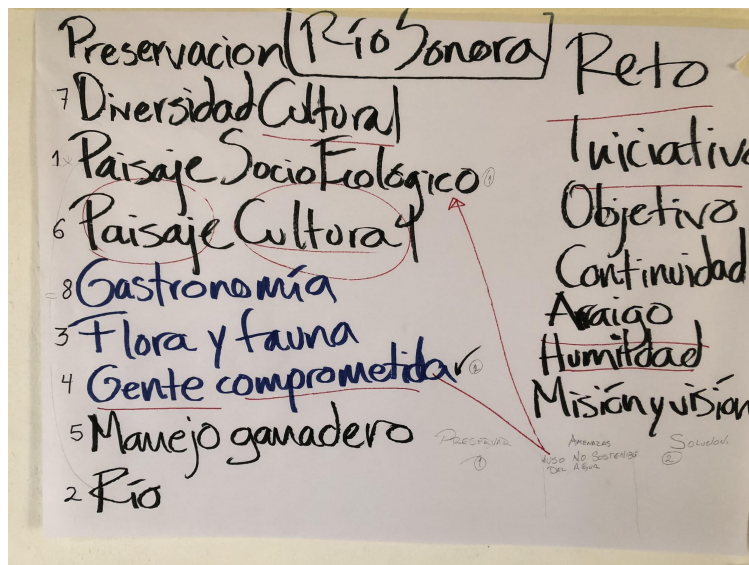 Preservacion Río Sonora
7 Diversidad Cultural
1 Paisaje SocioEcológico 1
6 Paisaje Cultural
8 Gastronomía
3 Flora y fauna
4 Gente comprometida ✓ 2
5 Manejo ganadero
2 Río
Reto
Iniciativa
Objetivo
Continuidad
Araigo
Humildad
Misión y visión
PRESERVAR
1
AMENAZAS
USO NO SOSTENIBLE
DEL AGUA
SOLUCION.
2